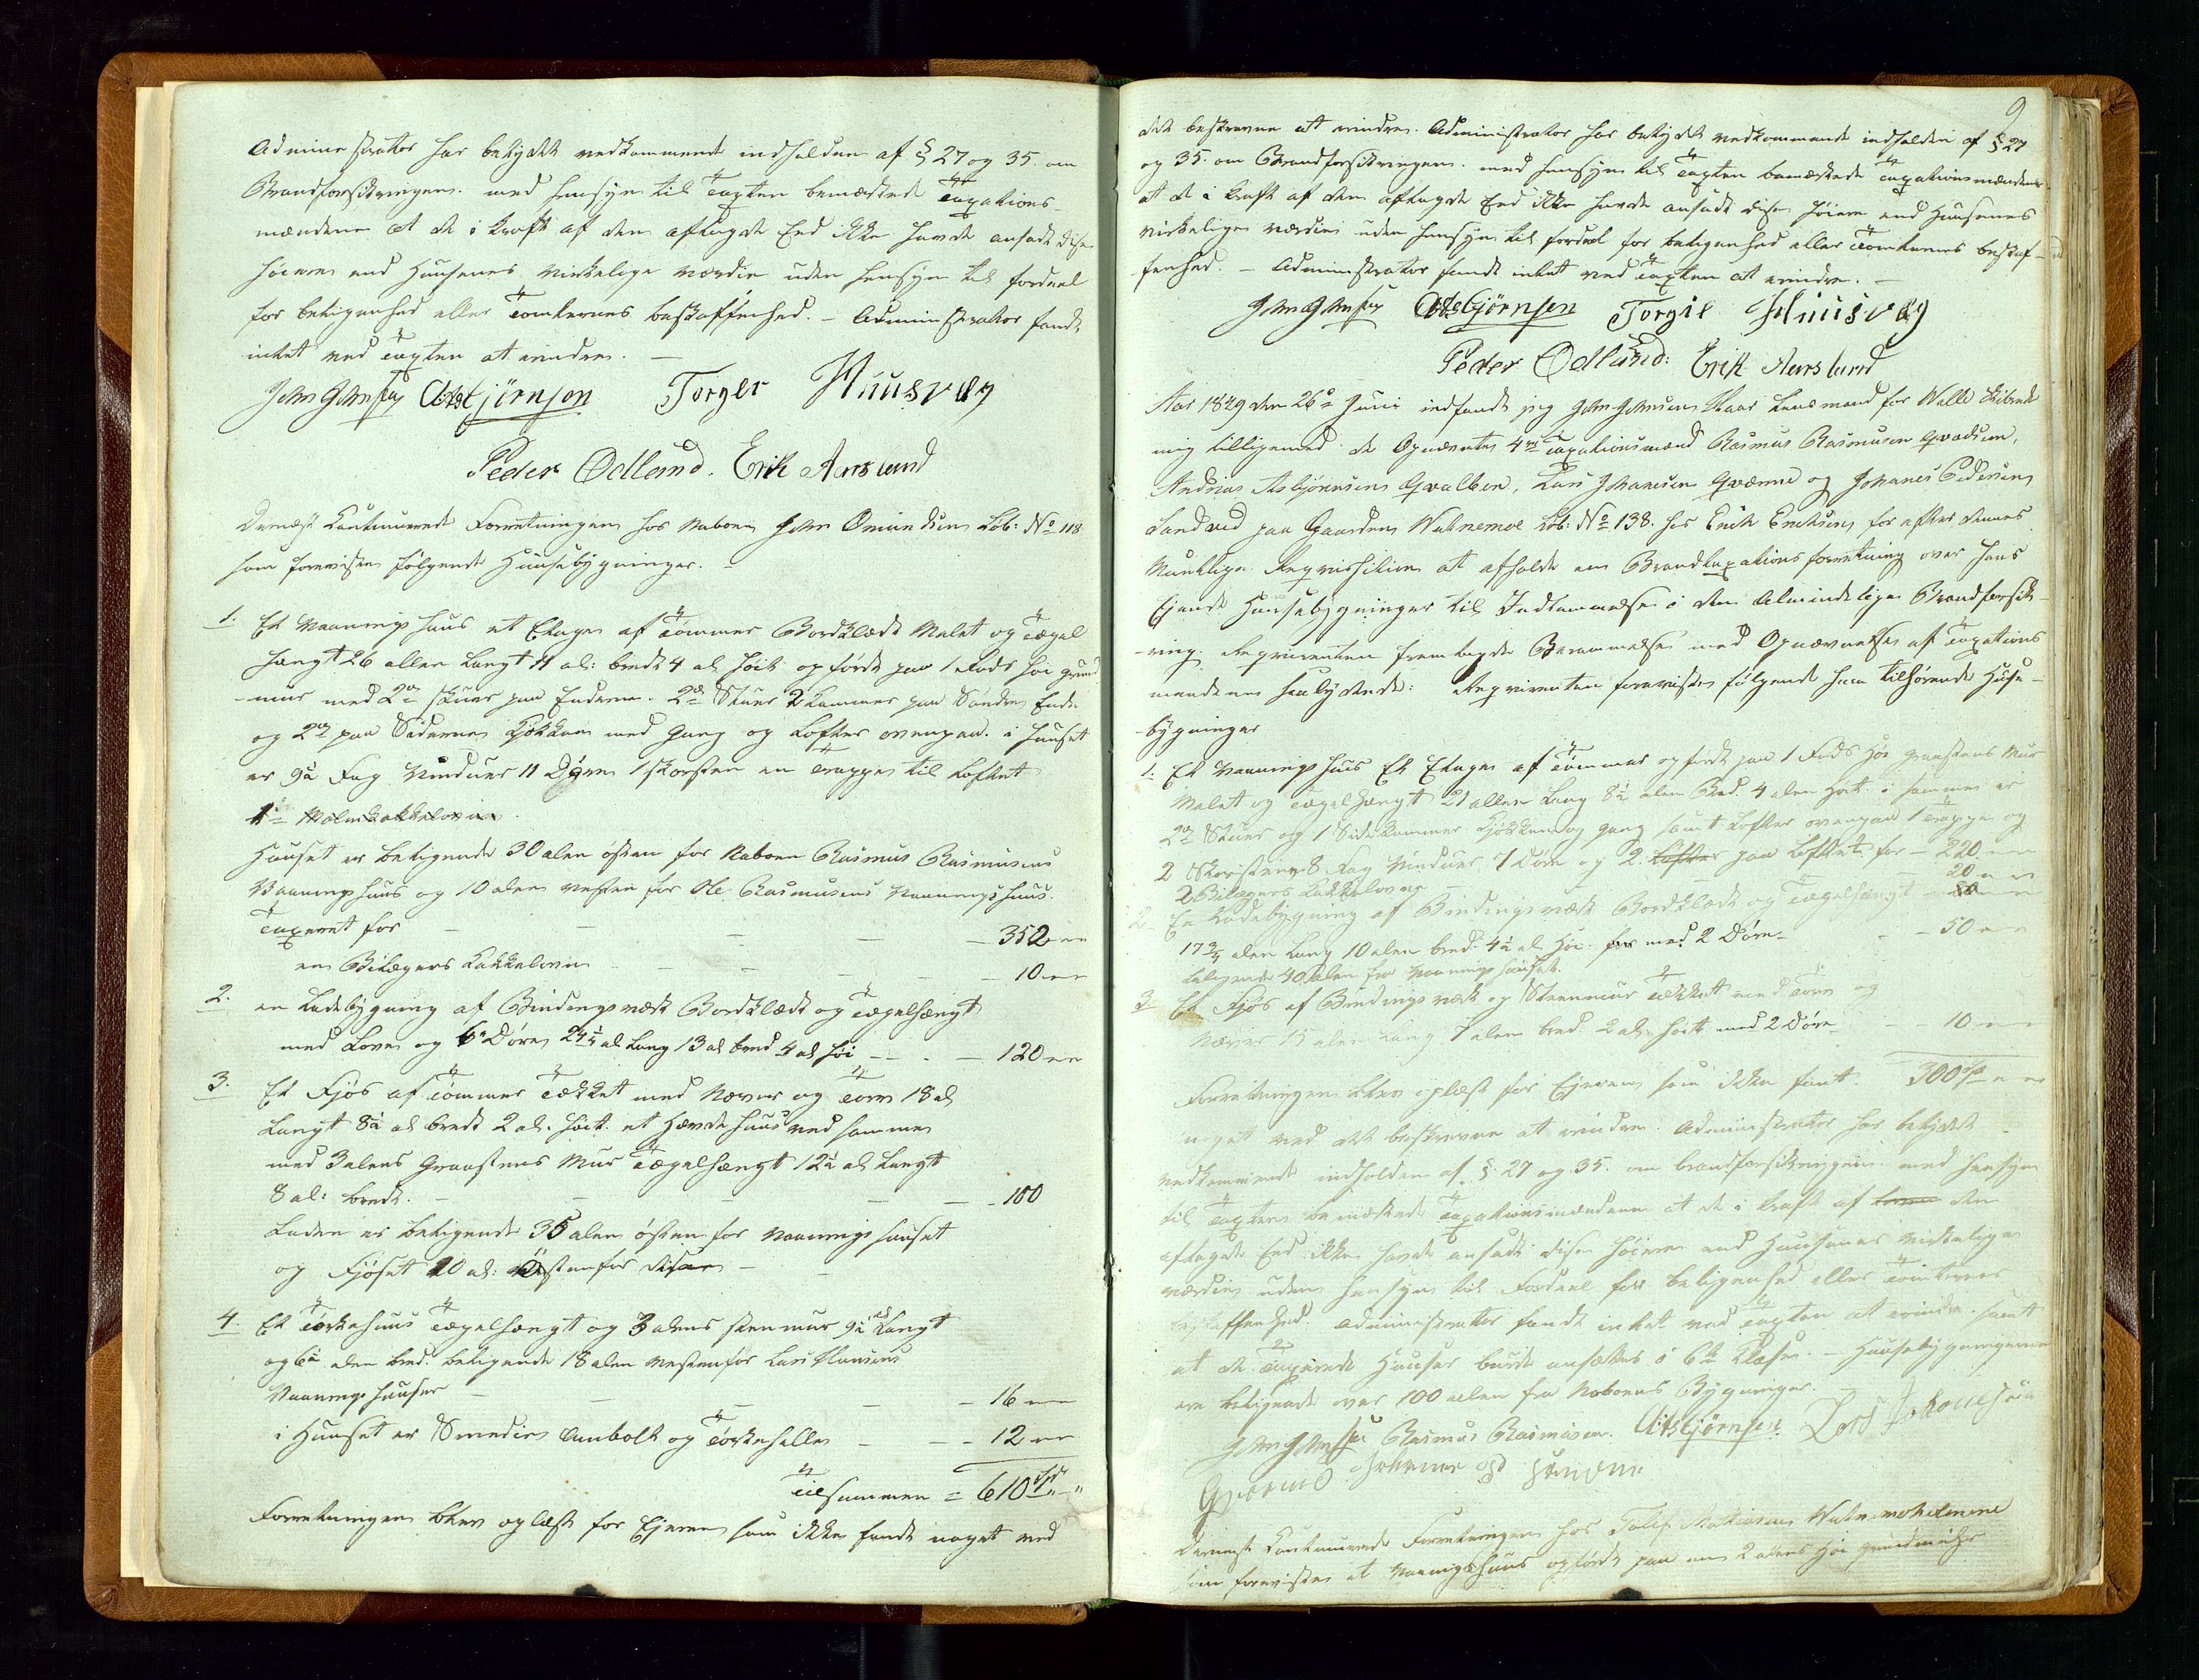 Administrator har betydet vedkommende indholden af § 27 og 35. om
Brandforsikringen. med hensyn til Taxten bemærkede Taxations-
mændene at de i kraft af den aflagde Eed ikke havde ansadt disse
høiere end Huusenes virkelige værdie uden hensyn til fordeel
for beligenhed eller Tomternes beskaffenhed. - Administrator fandt
intet ved Taxten at erindre. -
John Johnsen Atsbjörnsen Torger Huusvog
Peder Ødland. Erik Aarsland
Dernæst Contnuerede Forretningen hos Naboen John Omundsen Løb: No 118
som foreviste følgende Huusebygninger. -
1. Et Vaaningshuus et Etages af Tømmer Bordklædt Malet og Tægel
hængt 26 allen langt 11 al: bredt 4 al høit opført paa 1 Fods høi grund
-mur med 2de skuer paa Enderne. 2de Stuer 2 Kammer paa Søndre Ende
og 2de paa Siderne Kjøkken med Gang og Lofter ovenpaa. i huuset
er 9½ Fag Vinduer 11 Dörre 1 skorsten en Trappe til Loftet
1de Malmkakkelovn.
Huuset er beligende 30 alen østen for Naboen Rasmus Rasmusens
Vaaningshuus og 10 alen vesten for Ole Rasmusens Vaaningshuus.
Taxeret for - - - - 350 " "
en Bilægers Kakkelovn - - - - 10 " "
2. en Ladebygning af Bindingsværk Bordklædt og Tægelhængt
med Lover og 6 Døre 24¼ al lang 13 al bred 4 al høi - - - 120 " "
3. Et Fjös af Tømmer Tækket med Næver og Torv 18 al
langt 8½ al bredt 2 al. høit. et Hævdehuus ved sammen
med 3 alens Graastens Muur Tægelhængt 12½ al langt
8 al: bredt. - - - - - 100
Laden er beligende 35 alen østen for Vaaningshuuset
og Fjöset 20 al: Østenfor disse -
4. Et Tørkehuus Tægelhængt og 3 alens stenmuur 9½ al langt
og 6½ alen bred. beligende 18 alen vestenfor Lars Hansens
Vaaningshuuser - - - - 16 " "
i Huuset er Smedie Ambolt og Tørkehelle - - - 12 " "
Tilsammen = 610 Spd " - "
Forretningen blev oplæst for Ejeren som ikke fandt noget ved
9
det beskrevne at erindre. Administrator har betydet vedkommende indholden af § 27
og 35. om Brandforsikringen. med hensyn til Taxten bemærkede Taxationsmændene
at de i kraft af den aflagde Eed ikke havde ansadt disse høiere end Huusenes
virkelige værdie uden hensyn til fordeel for beligenhed eller Tomternes beskaf-
fenhed. - Administrator fandt intet ved Taxten at erindre. -
John Johnsen Atsbjørnsen Torgil Huusvog
Peder Ødland: Erik Aarsland
Aar 1849 den 26de Junii indfandt jeg John Johnsen Skaar Lensmand for Walle Skibrede
mig tilligemed de Opnævnte 4re Taxationsmænd Rasmus Rasmusen Qvadsem,
Andreas Asbjörensen Qvalben, Lars Johanesen Qværme og Johanes Pedersen
Sandved paa Gaarden Watnemoe Løb: No 138. hos Erik Eriksen, for efter dennes
Mundtlige Reqvisistion at afholde en Brandtaxations forretning over hans
Ejende Huusebygninger til Indlemmelse i den Almindelige Brandforsik-
-ring. Reqvirenten fremlagde Berammelse med Opnævnelse af Taxations
mændene saalydende: Reqvirenten foreviste følgende ham tilhørende Huse-
-bygninger
1. Et Vaaningshuus Et Etages af Tømmer opført paa 1 Fods høi graastens Mur
Malet og Tægelhængt 21 allen Lang 8½ alen Bred. 4 alen høit. i sammen er
2de Stuer og 1 Sidekammer Kjökken og Gang samt Lofter ovenpaa 1 Trappe og
2 Skorstene 8 Fag Vinduer, 7 Döre og 2. Lofter paa Loftet for - 220 " "
2 Bilægers Kakkelovne - - - - 20 " "
2. En Ladebygning af Bindingsværk Bordklædt og Tægelhængt
17¾ alen Lang 10 alen bred. 4½ al høi. for med 2 Döre - - - 50 " "
beligende 40 alen fra Vaaningshuuset.
3. Et Fjös af Bindingsværk og Steenmuur Tækket med Torv og
Næver 15 alen Lang 7 alen bred. 2 al. høit med 2 Döre - - 10 " "
300 Spd " "
Forretningen blev oplæst for Ejeren som ikke fant
noget ved det beskrevne at erindre. Administrator har betydet
vedkommende indholden af. §. 27 og 35. om brandforsikringen. med hensyn
til Taxten bemærkede Taxationsmændene at de i kraft af den
aflagde Eed ikke havde ansadt disse høiere end Huusenes virkelige
værdie uden hensyn til Fordeel for beligenhed eller Tomternes
beskaffenhed. Administrator fandt intet ved Taxten at erindre. samt
at de Taxerede Huuser burde ansættes i 6te Classe. - Huusebygningerne
ere beligende over 100 alen fra Naboens Bygninger. -
John Johnsen Rasmus Rasmusen. Atsbjørnsen. Lars Johanesen
Qværme Johannes
Dernæst Contnuerede Forretningen hos Tollef Watnemoholmene
som foreviste et Vaaningshuus opført paa en 2 alens høi grundmuur